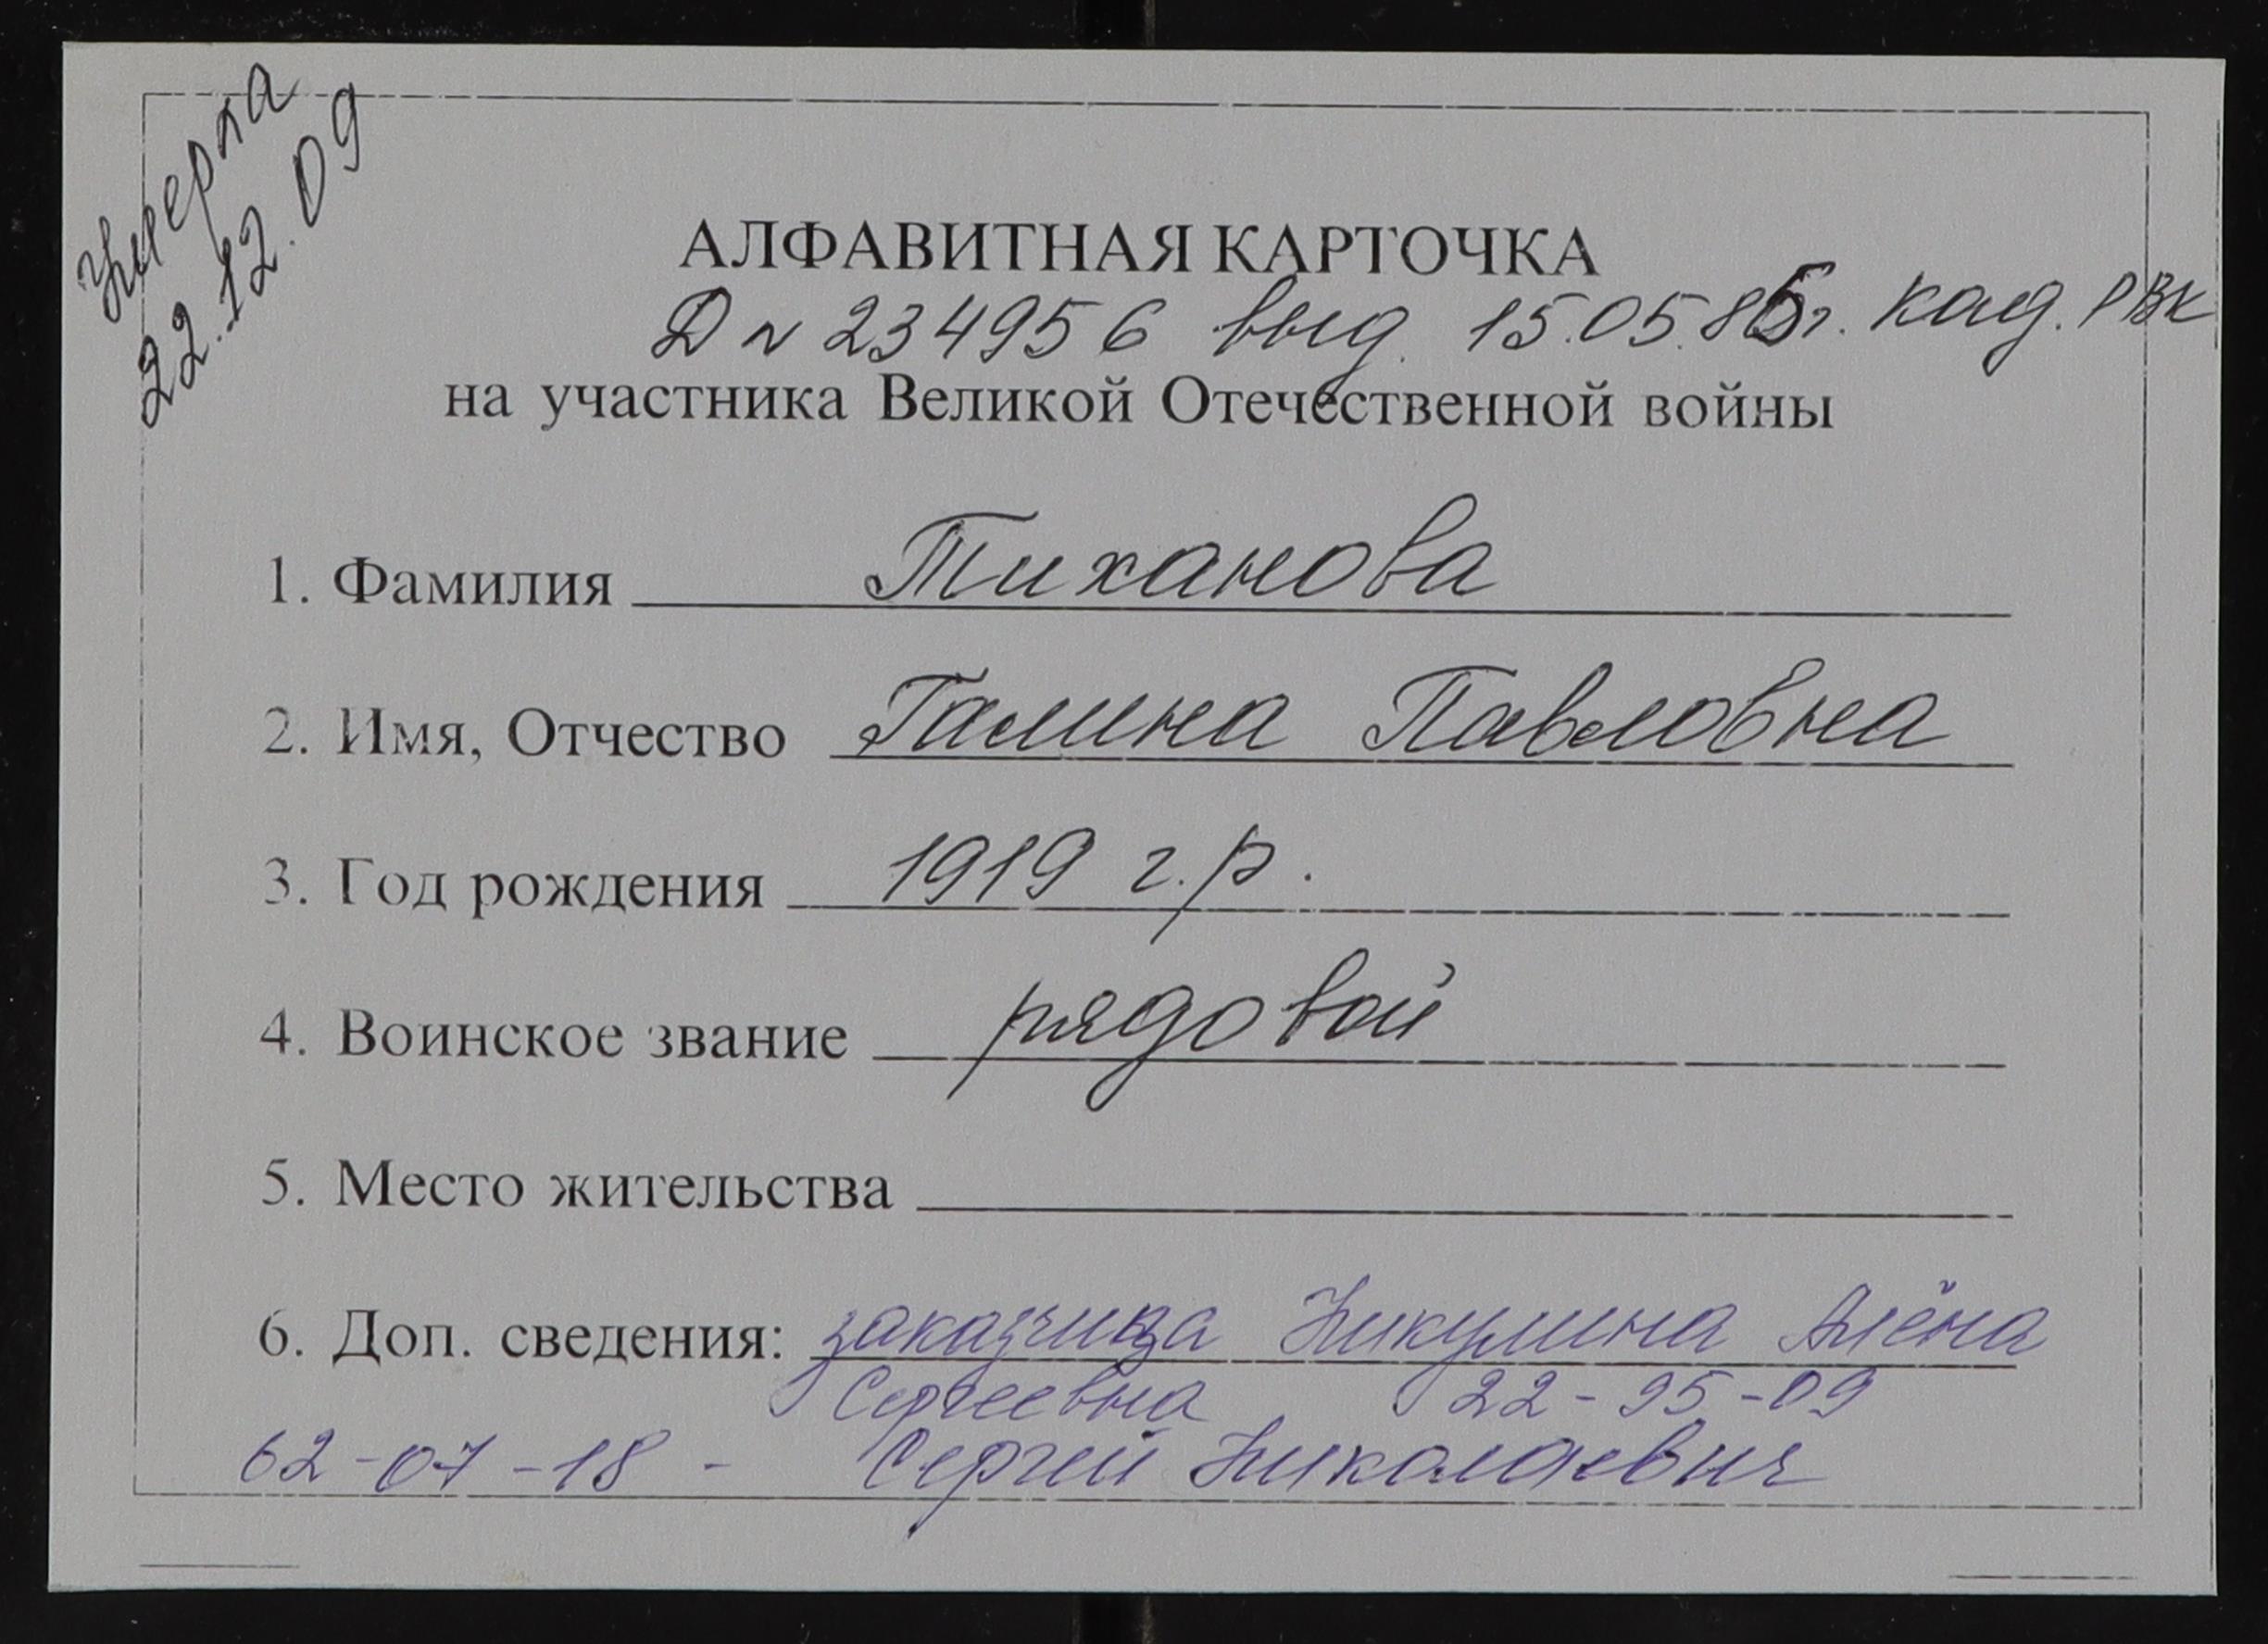 Умерла
22.12.09
АЛФАВИТНАЯ КАРТОЧКА
Д № 234956 выд. 15.05.85г. кад. РВК
на участника Великой Отечественной войны
1. Фамилия Тиханова
2. Имя, Отчество Галина Павловна
3. Год рождения 1919 г.р.
4. Воинское звание рядовой
5. Место жительства
6. Доп. сведения: заказчица Никулина Алёна
Сергеевна 22-95-09
62-07-18 - Сергей Николаевич